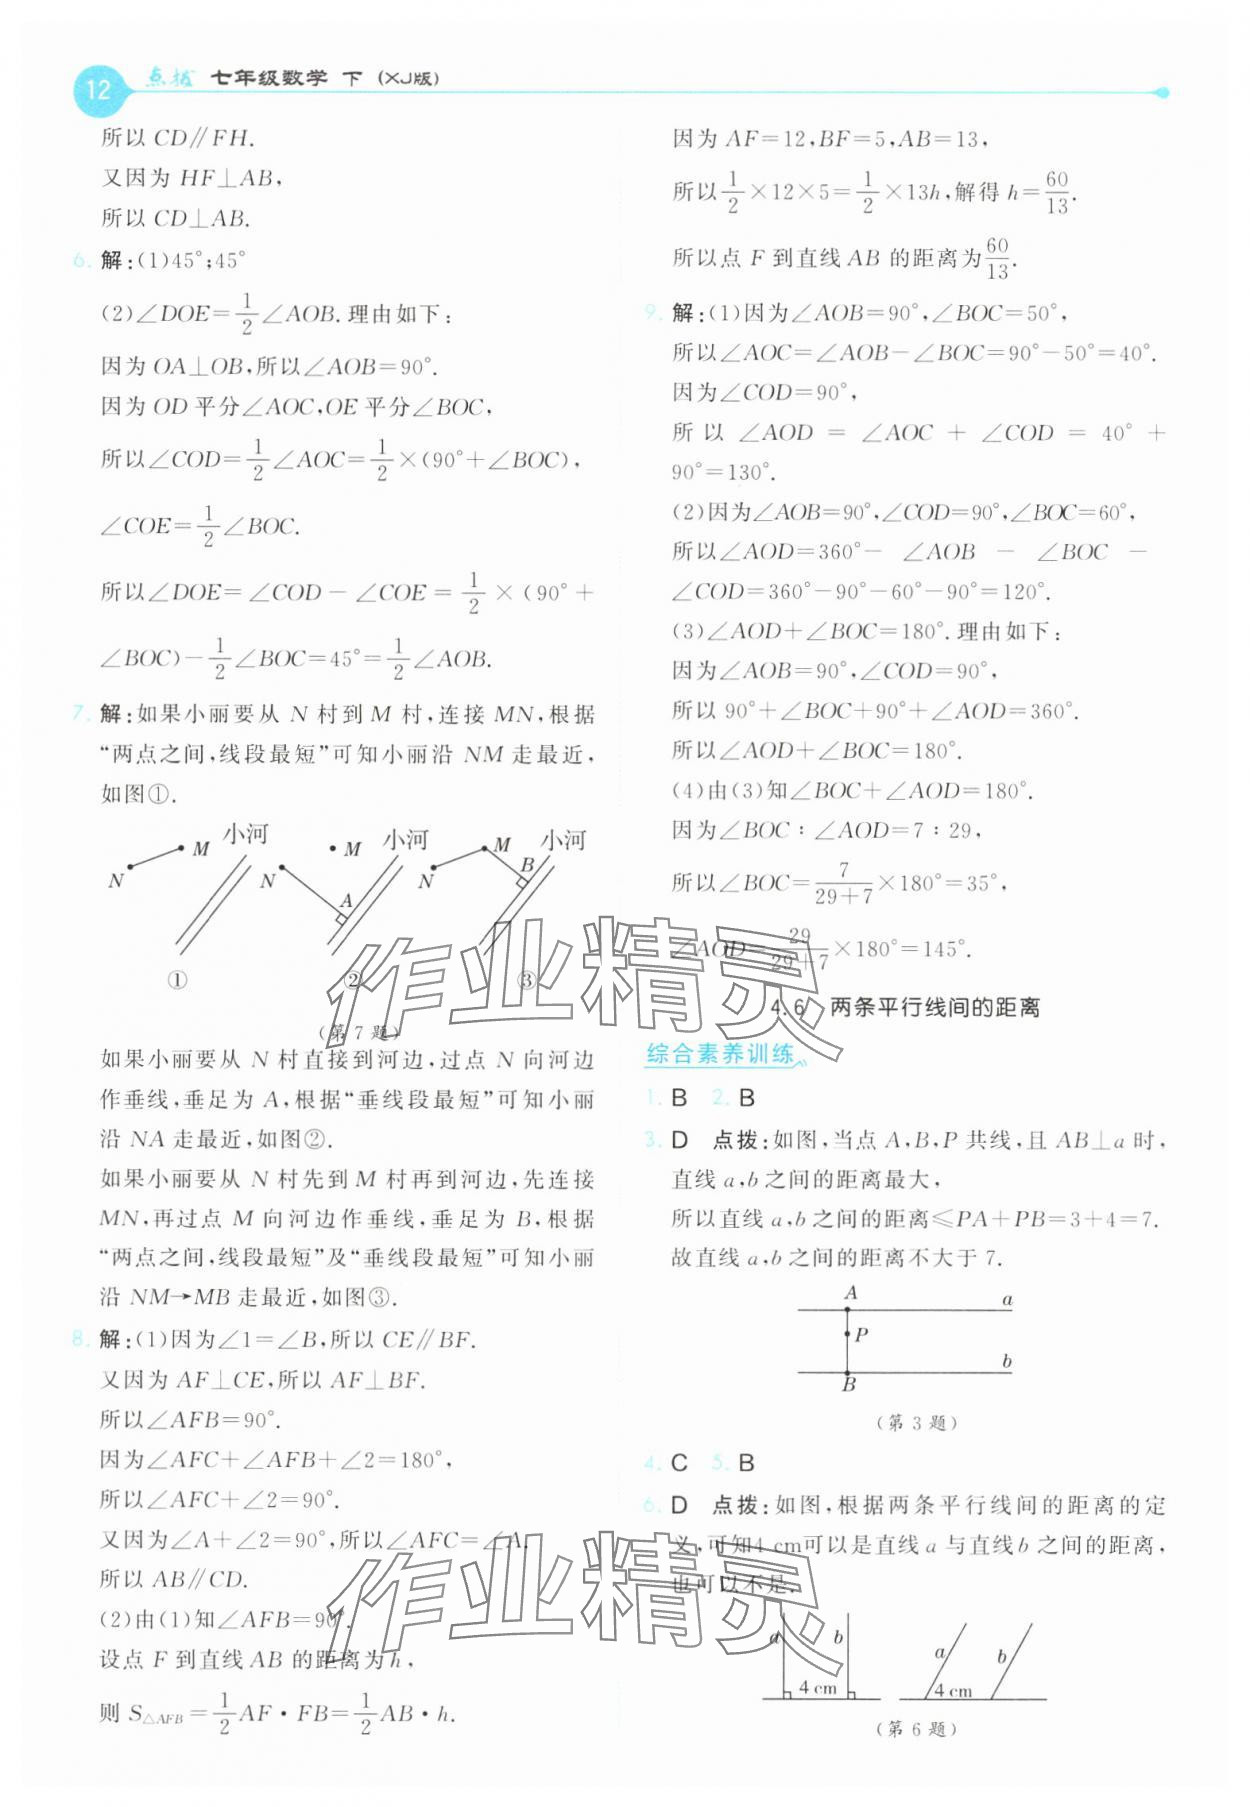 12 点拨 七年级数学 下 (XJ版)
所以 CD∥FH.
又因为 HF⊥AB,
所以 CD⊥AB.
6. 解:(1)45°;45°
(2)∠DOE=1/2∠AOB.理由如下:
因为 OA⊥OB,所以∠AOB=90°.
因为 OD 平分∠AOC,OE 平分∠BOC,
所以∠COD=1/2∠AOC=1/2×(90°+∠BOC),
∠COE=1/2∠BOC.
所以∠DOE=∠COD-∠COE=1/2×(90°+
∠BOC)-1/2∠BOC=45°=1/2∠AOB.
7. 解:如果小丽要从 N 村到 M 村,连接 MN,根据
“两点之间,线段最短”可知小丽沿 NM 走最近,
如图①.
小河 M N ①
小河 M N A ②
小河 M B N ③
(第 7 题)
如果小丽要从 N 村直接到河边,过点 N 向河边
作垂线,垂足为 A,根据“垂线段最短”可知小丽
沿 NA 走最近,如图②.
如果小丽要从 N 村先到 M 村再到河边,先连接
MN,再过点 M 向河边作垂线,垂足为 B,根据
“两点之间,线段最短”及“垂线段最短”可知小丽
沿 NM→MB 走最近,如图③.
8. 解:(1)因为∠1=∠B,所以 CE∥BF.
又因为 AF⊥CE,所以 AF⊥BF.
所以∠AFB=90°.
因为∠AFC+∠AFB+∠2=180°,
所以∠AFC+∠2=90°.
又因为∠A+∠2=90°,所以∠AFC=∠A.
所以 AB∥CD.
(2)由(1)知∠AFB=90°.
设点 F 到直线 AB 的距离为 h,
则 S△AFB=1/2AF·FB=1/2AB·h.
因为 AF=12,BF=5,AB=13,
所以1/2×12×5=1/2×13h,解得 h=60/13.
所以点 F 到直线 AB 的距离为60/13.
9. 解:(1)因为∠AOB=90°,∠BOC=50°,
所以∠AOC=∠AOB-∠BOC=90°-50°=40°.
因为∠COD=90°,
所以 ∠AOD = ∠AOC + ∠COD = 40° +
90°=130°.
(2)因为∠AOB=90°,∠COD=90°,∠BOC=60°,
所以∠AOD=360°- ∠AOB - ∠BOC -
∠COD=360°-90°-60°-90°=120°.
(3)∠AOD+∠BOC=180°.理由如下:
因为∠AOB=90°,∠COD=90°,
所以 90°+∠BOC+90°+∠AOD=360°.
所以∠AOD+∠BOC=180°.
(4)由(3)知∠BOC+∠AOD=180°.
因为∠BOC∶∠AOD=7∶29,
所以∠BOC=7/(29+7)×180°=35°,
∠AOD=29/(29+7)×180°=145°.
4.6 两条平行线间的距离
综合素养训练
1. B 2. B
3. D 点拨:如图,当点 A,B,P 共线,且 AB⊥a 时,
直线 a,b 之间的距离最大,
所以直线 a,b 之间的距离≤PA+PB=3+4=7.
故直线 a,b 之间的距离不大于 7.
A a
P
b
B
(第 3 题)
4. C 5. B
6. D 点拨:如图,根据两条平行线间的距离的定
义,可知4 cm可以是直线 a 与直线 b 之间的距离,
也可以不是.
a b 4 cm
a b 4 cm
(第 6 题)
作业精灵
作业精灵